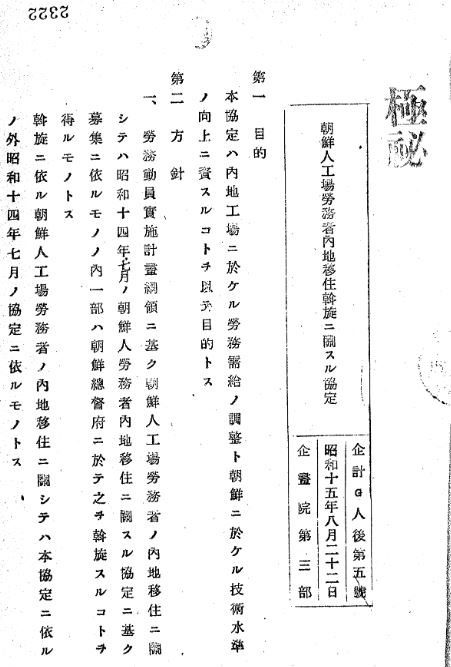 2322
極祕
企計G人後第五號
昭和十五年八月二十二日
企畫院第三部
朝鮮人工場勞務者內地移住斡旋ニ關スル協定
第一 目的
本協定ハ內地工場ニ於ケル勞務需給ノ調整ト朝鮮ニ於ケル技術水準
ノ向上ニ資スルコトヲ以テ目的トス
第二 方針
一、勞務動員實施計畫綱領ニ基ク朝鮮人工場勞務者ノ內地移住ニ關
シテハ昭和十四年七月ノ朝鮮人勞務者內地移住ニ關スル協定ニ基ク
募集ニ依ルモノノ內一部ハ朝鮮總督府ニ於テ之ヲ斡旋スルコトヲ
得ルモノトス
斡旋ニ依ル朝鮮人工場勞務者ノ內地移住ニ關シテハ本協定ニ依ル
ノ外昭和十四年七月ノ協定ニ依ルモノトス